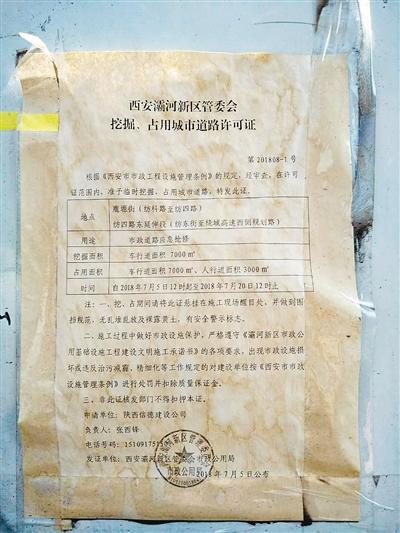 西安灞河新区管委会
挖掘、占用城市道路许可证
第 201808-1 号
根据《西安市市政工程设施管理条例》的规定，经审查，在许可
证范围内，准予临时挖掘、占用城市道路，特发此证。
地点
鹰塬街（纺科路至纺四路）
纺四路东延伸段（纺东街至绕城高速西侧规划路）
用途 市政道路应急抢修
挖掘面积 车行道面积 7000㎡
占用面积 车行道面积 7000㎡、人行道面积 3000㎡
时间 自2018年7月5日12时起至2018年7月20日12时止
注：一、挖、占期间请将此证悬挂在施工现场醒目处，并做到围
挡规范，无乱堆乱放及裸露黄土，有安全警示标志。
二、施工过程中做好市政设施保护，严格遵守《灞河新区市政公
用基础设施工程建设文明施工承诺书》的各项要求，出现市政设施损
坏或违反治污减霾、精细化等工作规定的对建设单位按《西安市市政
设施管理条例》进行处罚并扣除质量保证金。
三、非此证核发部门不得扣押本证。
申请单位：陕西信德建设公司
负责人：张西锋
电话号码：15109175
发证单位：西安灞河新区管委会市政公用局
2018年7月5日公布
市政公用局